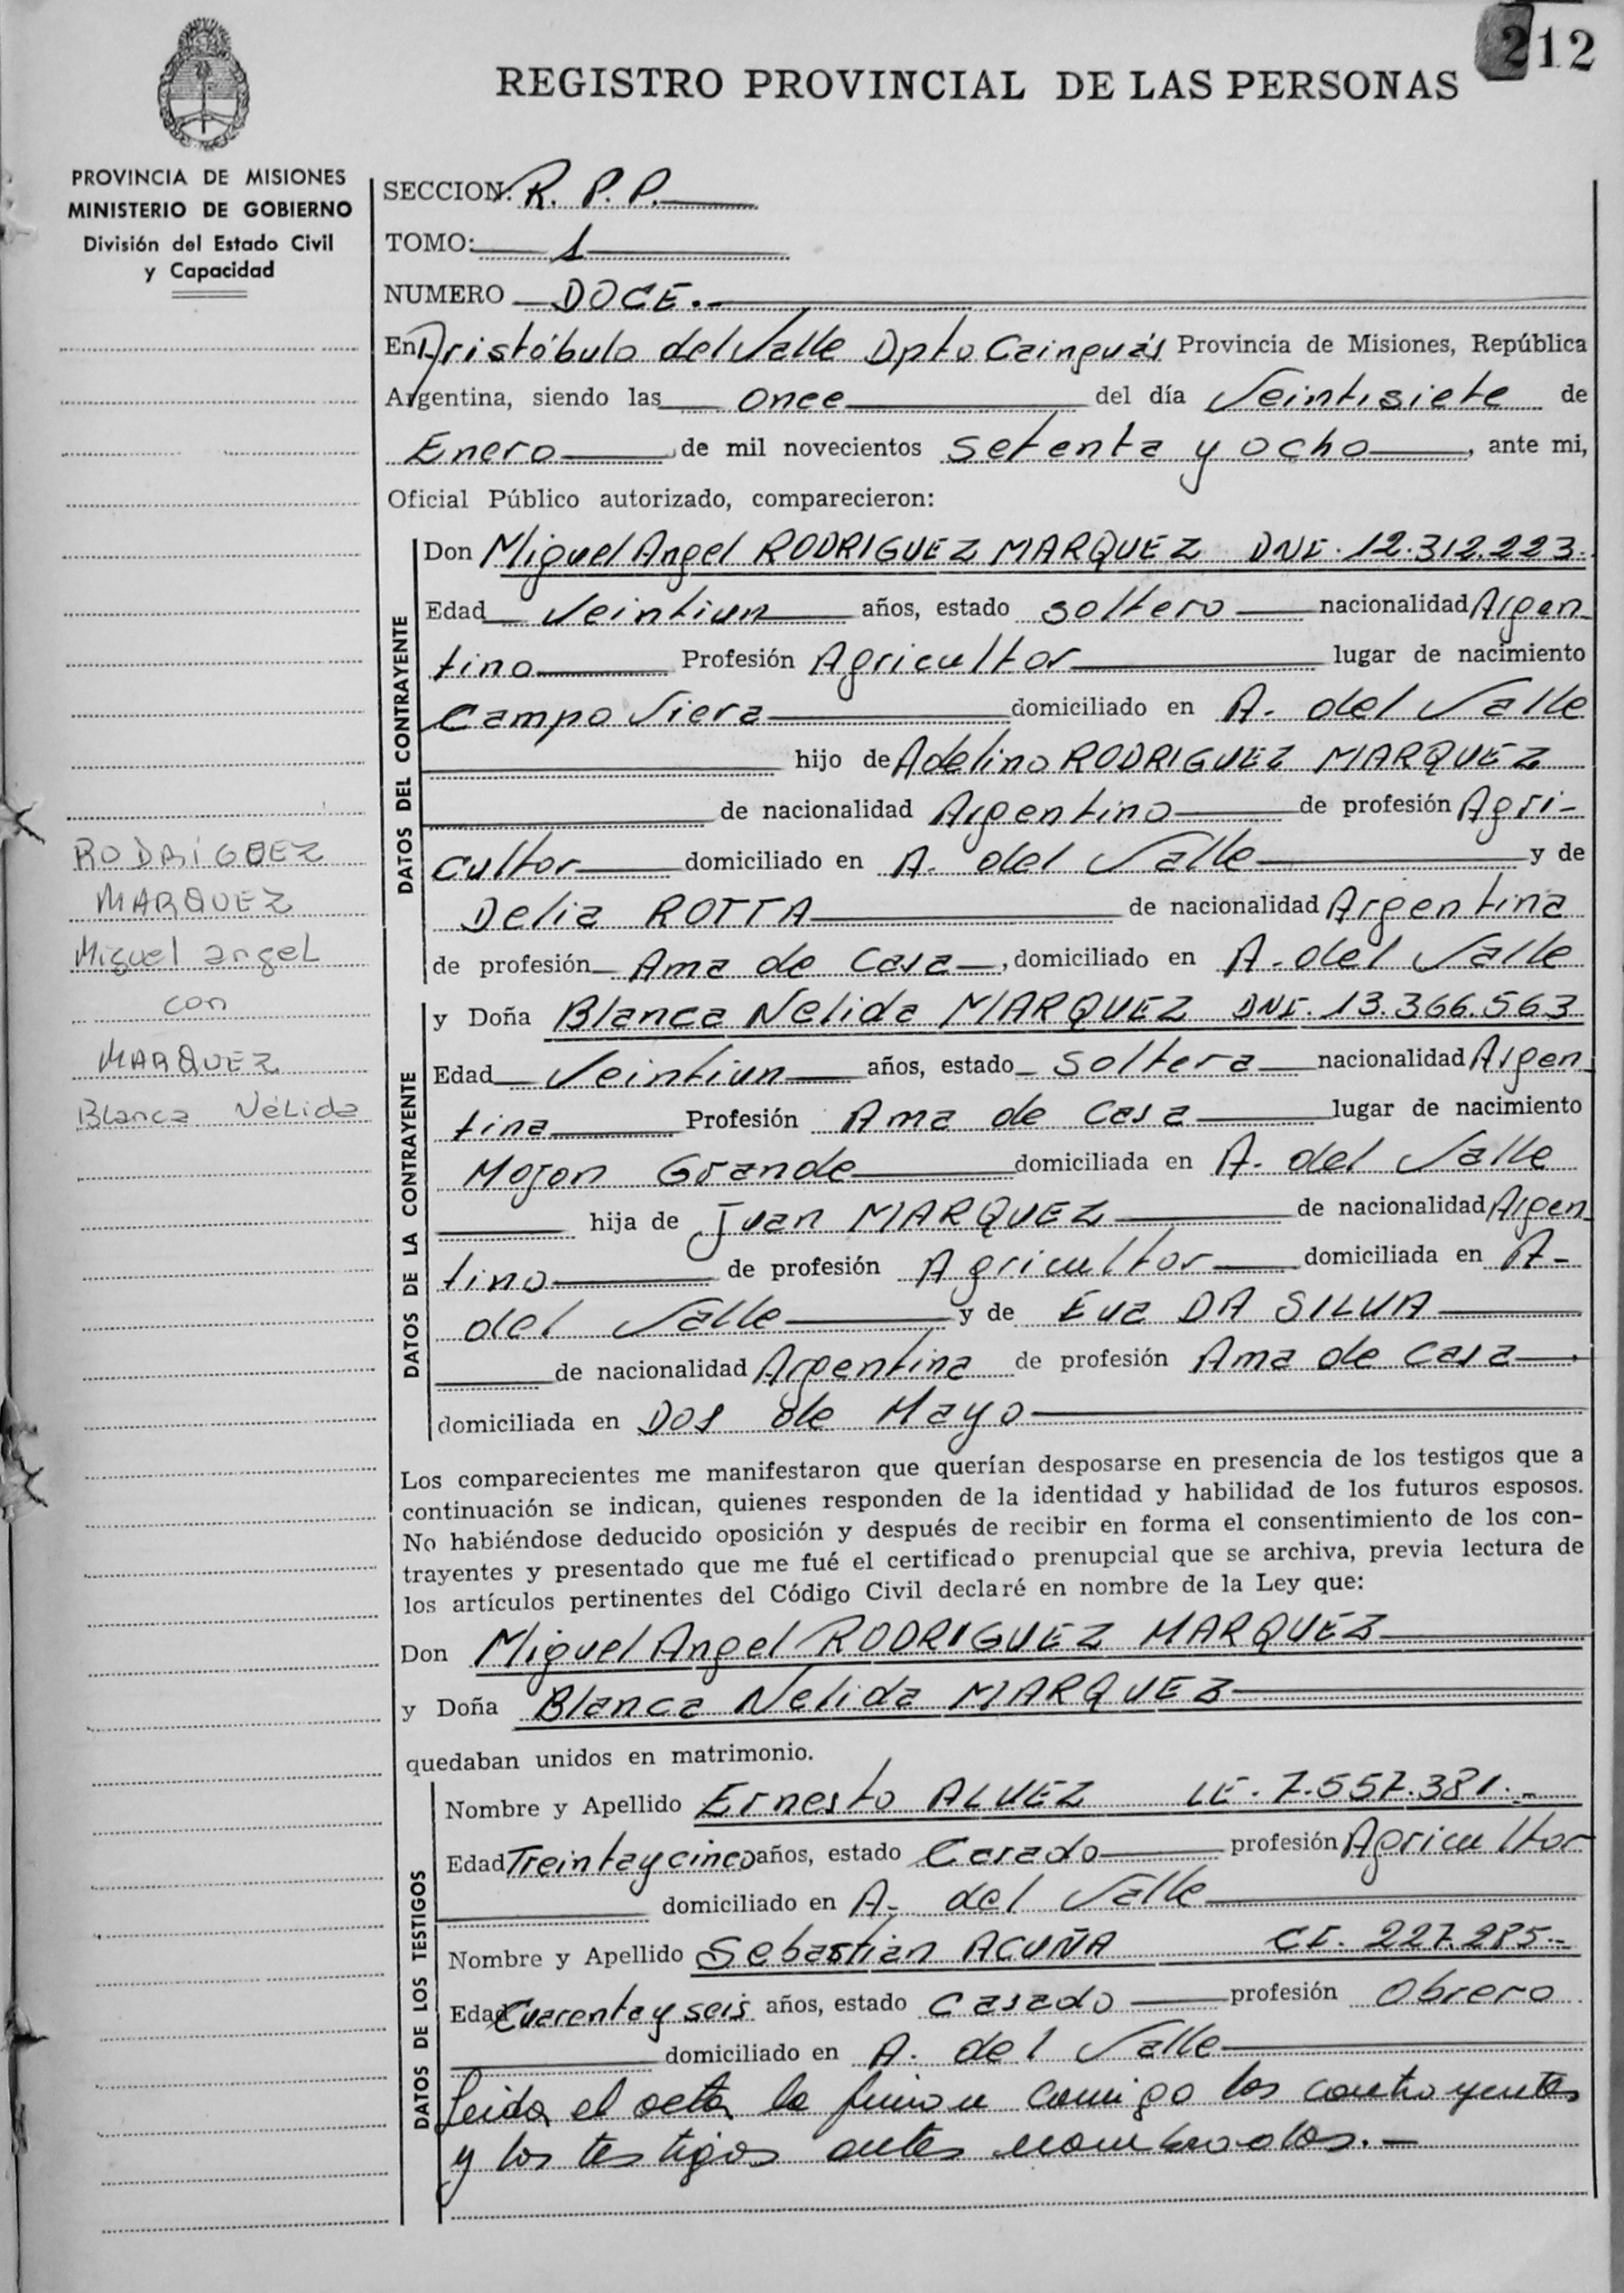 212
REGISTRO PROVINCIAL DE LAS PERSONAS
PROVINCIA DE MISIONES
MINISTERIO DE GOBIERNO
División del Estado Civil
y Capacidad
SECCION: R. P. P.
TOMO: 1
NUMERO DOCE.-
En Aristóbulo del Valle Dpto Cainguás Provincia de Misiones, República
Argentina, siendo las once del día Veintisiete de
Enero de mil novecientos setenta y ocho, ante mi,
Oficial Público autorizado, comparecieron:
DATOS DEL CONTRAYENTE
Don Miguel Angel RODRIGUEZ MARQUEZ DNI. 12.312.223.
Edad Veintiun años, estado soltero nacionalidad Argen
tino Profesión Agricultor lugar de nacimiento
Campo Viera domiciliado en A. del Valle
hijo de Adelino RODRIGUEZ MARQUEZ
de nacionalidad Argentino de profesión Agri-
cultor domiciliado en A. del Valle y de
Delia ROTTA de nacionalidad Argentina
de profesión Ama de Casa, domiciliado en A. del Valle
RODRIGUEZ
MARQUEZ
Miguel angel
con
MARQUEZ
Blanca Nélida
DATOS DE LA CONTRAYENTE
y Doña Blanca Nelida MARQUEZ DNI. 13.366.563
Edad Veintiun años, estado Soltera nacionalidad Argen
tina Profesión Ama de Casa lugar de nacimiento
Mojon Grande domiciliada en A. del Valle
hija de Juan MARQUEZ de nacionalidad Argen
tino de profesión Agricultor domiciliada en A-
del Valle y de Eva DA SILVA
de nacionalidad Argentina de profesión Ama de Casa
domiciliada en Dos de Mayo
Los comparecientes me manifestaron que querían desposarse en presencia de los testigos que a
continuación se indican, quienes responden de la identidad y habilidad de los futuros esposos.
No habiéndose deducido oposición y después de recibir en forma el consentimiento de los con-
trayentes y presentado que me fué el certificado prenupcial que se archiva, previa lectura de
los artículos pertinentes del Código Civil declaré en nombre de la Ley que:
Don Miguel Angel RODRIGUEZ MARQUEZ
y Doña Blanca Nelida MARQUEZ
quedaban unidos en matrimonio.
DATOS DE LOS TESTIGOS
Nombre y Apellido Ernesto ALVEZ LE. 7.557.381.-
Edad Treinta y cinco años, estado Casado profesión Agricultor
domiciliado en A. del Valle
Nombre y Apellido Sebastián ACUÑA CI. 227.285.-
Edad Cuarenta y seis años, estado casado profesión Obrero
domiciliado en A. del Valle
Leida el acta la firman comigo los contrayentes
y los testigos antes nombrados.-